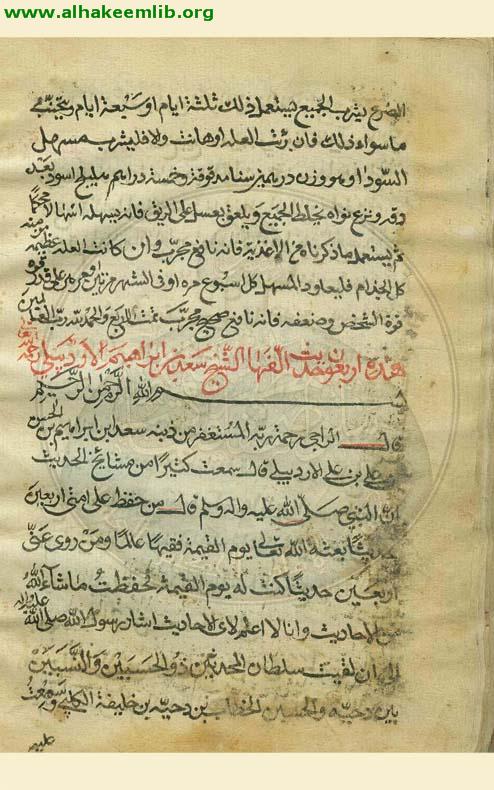 www.alhakeemlib.org
الصرع يشرب الجميع يستعمل ذلك ثلثة ايام او سبعة ايام ويتجنب
ما سواء ذلك فان برئت العلة او هانت والا فليشرب مسهل
السودا وهو وزن درهمين سنا مدقوقة وخمسة دراهم هليلج اسود بعد
دقه ونزع نواه يخلط الجميع ويلعق بعسل على الريق فانه يسهله اسهالا محكما
ثم يستعمل ما ذكرناه من الاغذية فانه نافع مجرب وان كانت العلة عظيمة
كالجذام فليعاود المسهل كل اسبوع مرة او فى الشهر مرتين او مرة على قدر
قوة الشخص وضعفه فانه نافع صحيح مجرب تمت والحمد لله رب العالمين
هذه اربعون حديث الفها الشيخ سعد بن ابراهيم الاردبيلى رحمه الله
بسم الله الرحمن الرحيم
قال الراجى رحمة ربه المستغفر من ذنبه سعد بن ابراهيم بن الحسن
بن على بن على الاردبيلى قال سمعت كثيرا من مشايخ الحديث
ان النبى صلى الله عليه واله وسلم قال من حفظ على امتى اربعين
حديثا بعثه الله تعالى يوم القيمة فقيها عالما ومن روى عنى
اربعين حديثا كنت له يوم القيمة فحفظت ما شاء الله
من الاحاديث وانا لا اعلم لاى الاحاديث اشار رسول الله صلى الله عليه واله
الى ان لقيت سلطان المحدثين ذو الحسبين والنسبين
بين دحيه والحسين الخطاب بن دحيه بن خليفة الكلبى وسمعت
عليه